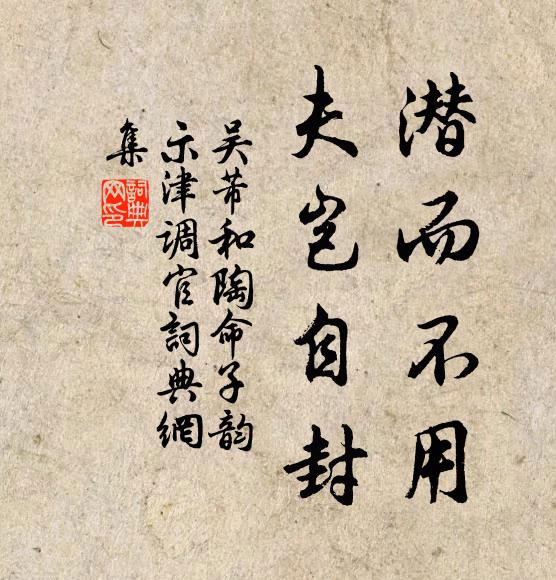 潜而不用
夫岂自封
吴芾和陶命子韵
示津调官詞典網
集
詞典
网印